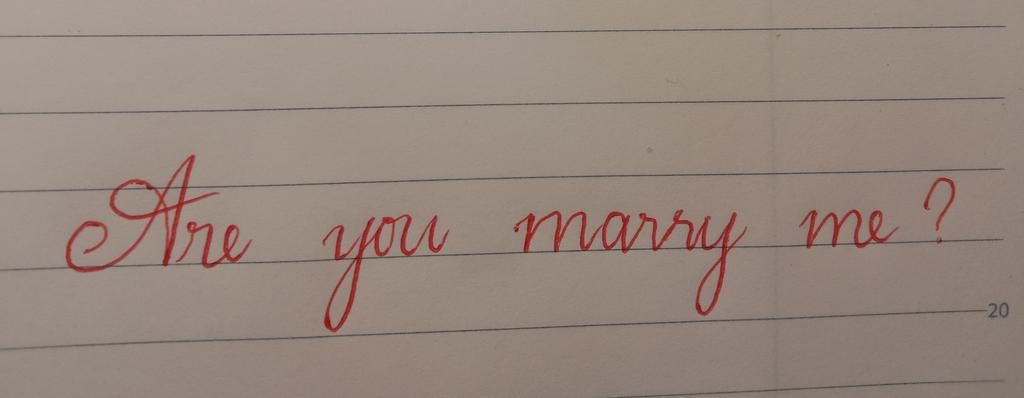 Are you marry me?
20